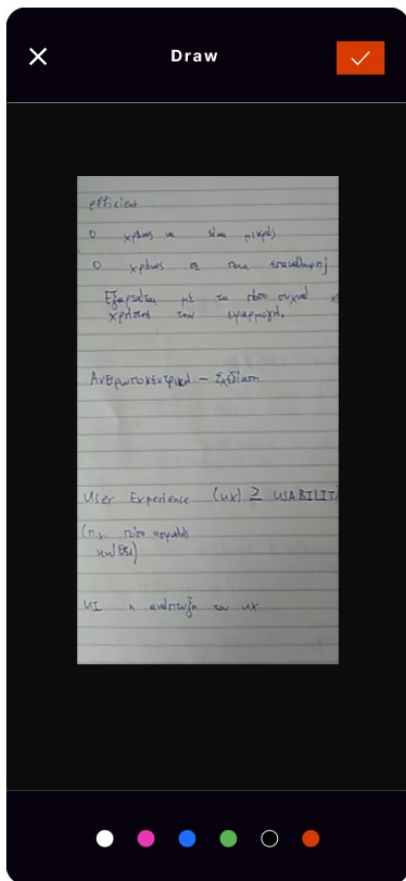 Draw
efficient
Ο χρόνος να είναι μικρός
Ο χρόνος σε ποια επανάληψη
Εξαρτάται με το πόσο συχνά
χρήστης την εφαρμογή.
Ανθρωποκεντρική – Σχεδίαση
User Experience (UX) ≥ USABILIT
(π.χ. πόσο
UI η ανάπτυξη του UX